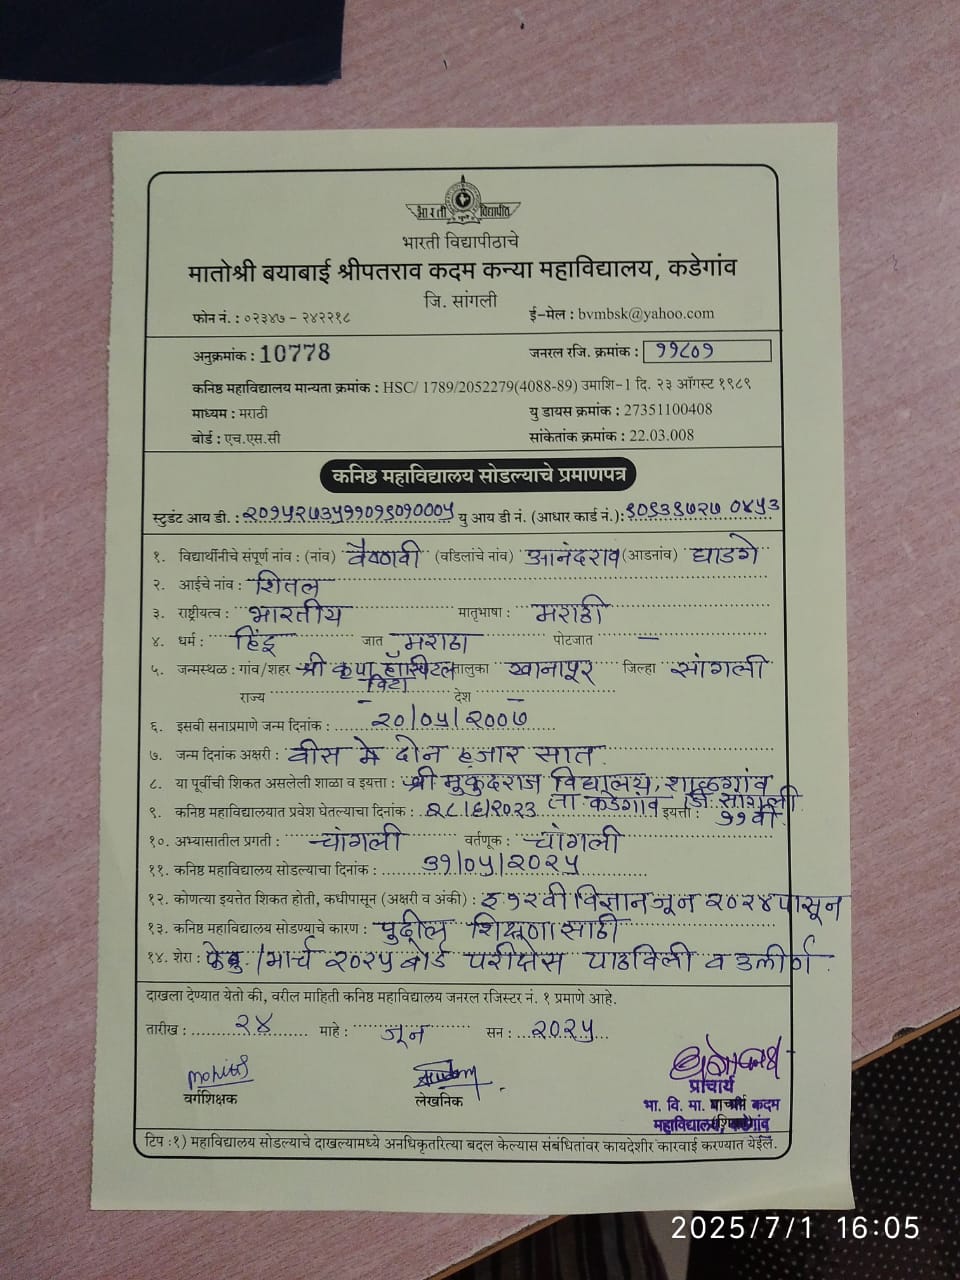 भारती विद्यापीठ
भारती विद्यापीठाचे
मातोश्री बयाबाई श्रीपतराव कदम कन्या महाविद्यालय, कडेगांव
जि. सांगली
फोन नं. : ०२३४७ - २४२२१८ ई-मेल : bvmbsk@yahoo.com
अनुक्रमांक : 10778 जनरल रजि. क्रमांक : ११८०१
कनिष्ठ महाविद्यालय मान्यता क्रमांक : HSC/ 1789/2052279(4088-89) उमाशि-1 दि. २३ ऑगस्ट १९८९
माध्यम : मराठी यु डायस क्रमांक : 27351100408
बोर्ड : एच.एस.सी सांकेतांक क्रमांक : 22.03.008
कनिष्ठ महाविद्यालय सोडल्याचे प्रमाणपत्र
स्टुडंट आय डी. : २०१५२७३५११०१९०१०००५ यु आय डी नं. (आधार कार्ड नं.):
१. विद्यार्थीनीचे संपूर्ण नांव : (नांव) वैष्णवी (वडिलांचे नांव) आनंदराव (आडनांव) घाडगे
२. आईचे नांव : शितल
३. राष्ट्रीयत्व : भारतीय मातृभाषा : मराठी
४. धर्म : हिंदू जात मराठा पोटजात —
५. जन्मस्थळ : गांव/शहर श्री कृपा हॉस्पिटल तालुका खानापूर जिल्हा सांगली
विटा
राज्य - देश -
६. इसवी सनाप्रमाणे जन्म दिनांक : २०/०५/२००७
७. जन्म दिनांक अक्षरी : वीस मे दोन हजार सात.
८. या पूर्वीची शिकत असलेली शाळा व इयत्ता : श्री मुकुंदराज विद्यालय, शाळगांव
ता. कडेगांव जि. सांगली
९. कनिष्ठ महाविद्यालयात प्रवेश घेतल्याचा दिनांक : २८/६/२०२३ इयत्ता : ११ वी.
१०. अभ्यासातील प्रगती : चांगली वर्तणूक : चांगली
११. कनिष्ठ महाविद्यालय सोडल्याचा दिनांक : ३१/०५/२०२५
१२. कोणत्या इयत्तेत शिकत होती, कधीपासून (अक्षरी व अंकी) : इ १२वी विज्ञान जून २०२४ पासून
१३. कनिष्ठ महाविद्यालय सोडण्याचे कारण : पुढील शिक्षणासाठी
१४. शेरा : फेब्रु. / मार्च २०२५ बोर्ड परीक्षेस पाठविली व उत्तीर्ण.
दाखला देण्यात येतो की, वरील माहिती कनिष्ठ महाविद्यालय जनरल रजिस्टर नं. १ प्रमाणे आहे.
तारीख : २४ माहे : जून सन : २०२५
वर्गशिक्षक लेखनिक प्राचार्य
भा. वि. मा. कदम
महाविद्यालय, कडेगांव
टिप : १) महाविद्यालय सोडल्याचे दाखल्यामध्ये अनधिकृतरित्या बदल केल्यास संबंधितांवर कायदेशीर कारवाई करण्यात येईल.
2025/7/1 16:05